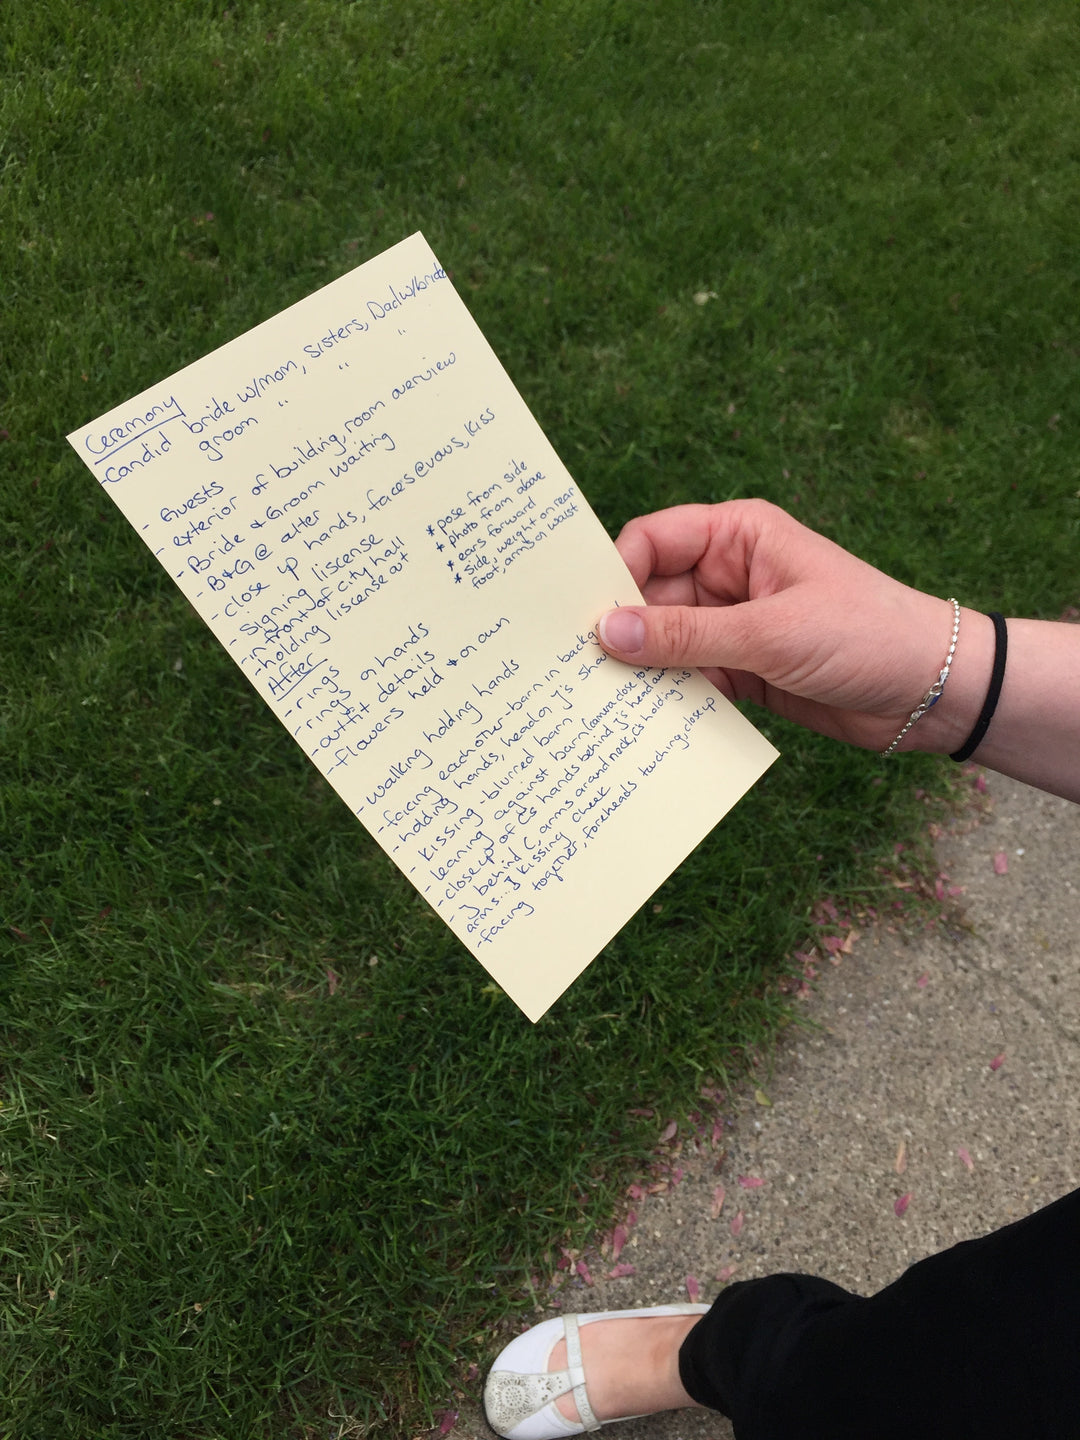 Ceremony
- Candid bride w/mom, sisters, Dad w/bride
groom " " "
- Guests
- exterior of building, room overview
- Bride & Groom waiting
- B&G @ alter
- close up hands, faces @ vows, kiss
- signing liscense
- in front of city hall
- holding liscense out
* pose from side
* photo from above
* ears forward
* side, weight on rear
foot, arms on waist
After
- rings
- rings on hands
- outfit details
- flowers held & on own
- walking holding hands
- facing each other - barn in backg
- holding hands, head on J's shou
- kissing - blurred barn
- leaning against barn (camera close to
- close up of C's hands behind J's head
- J behind C, arms around neck, C's holding his
arms... J kissing cheek
- facing together, foreheads touching, close up